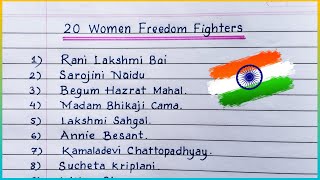 20 Women Freedom Fighters
1) Rani Lakshmi Bai
2) Sarojini Naidu
3) Begum Hazrat Mahal.
4) Madam Bhikaji Cama.
5) Lakshmi Sahgal.
6) Annie Besant.
7) Kamaladevi Chattopadhyay.
8) Sucheta Kriplani.